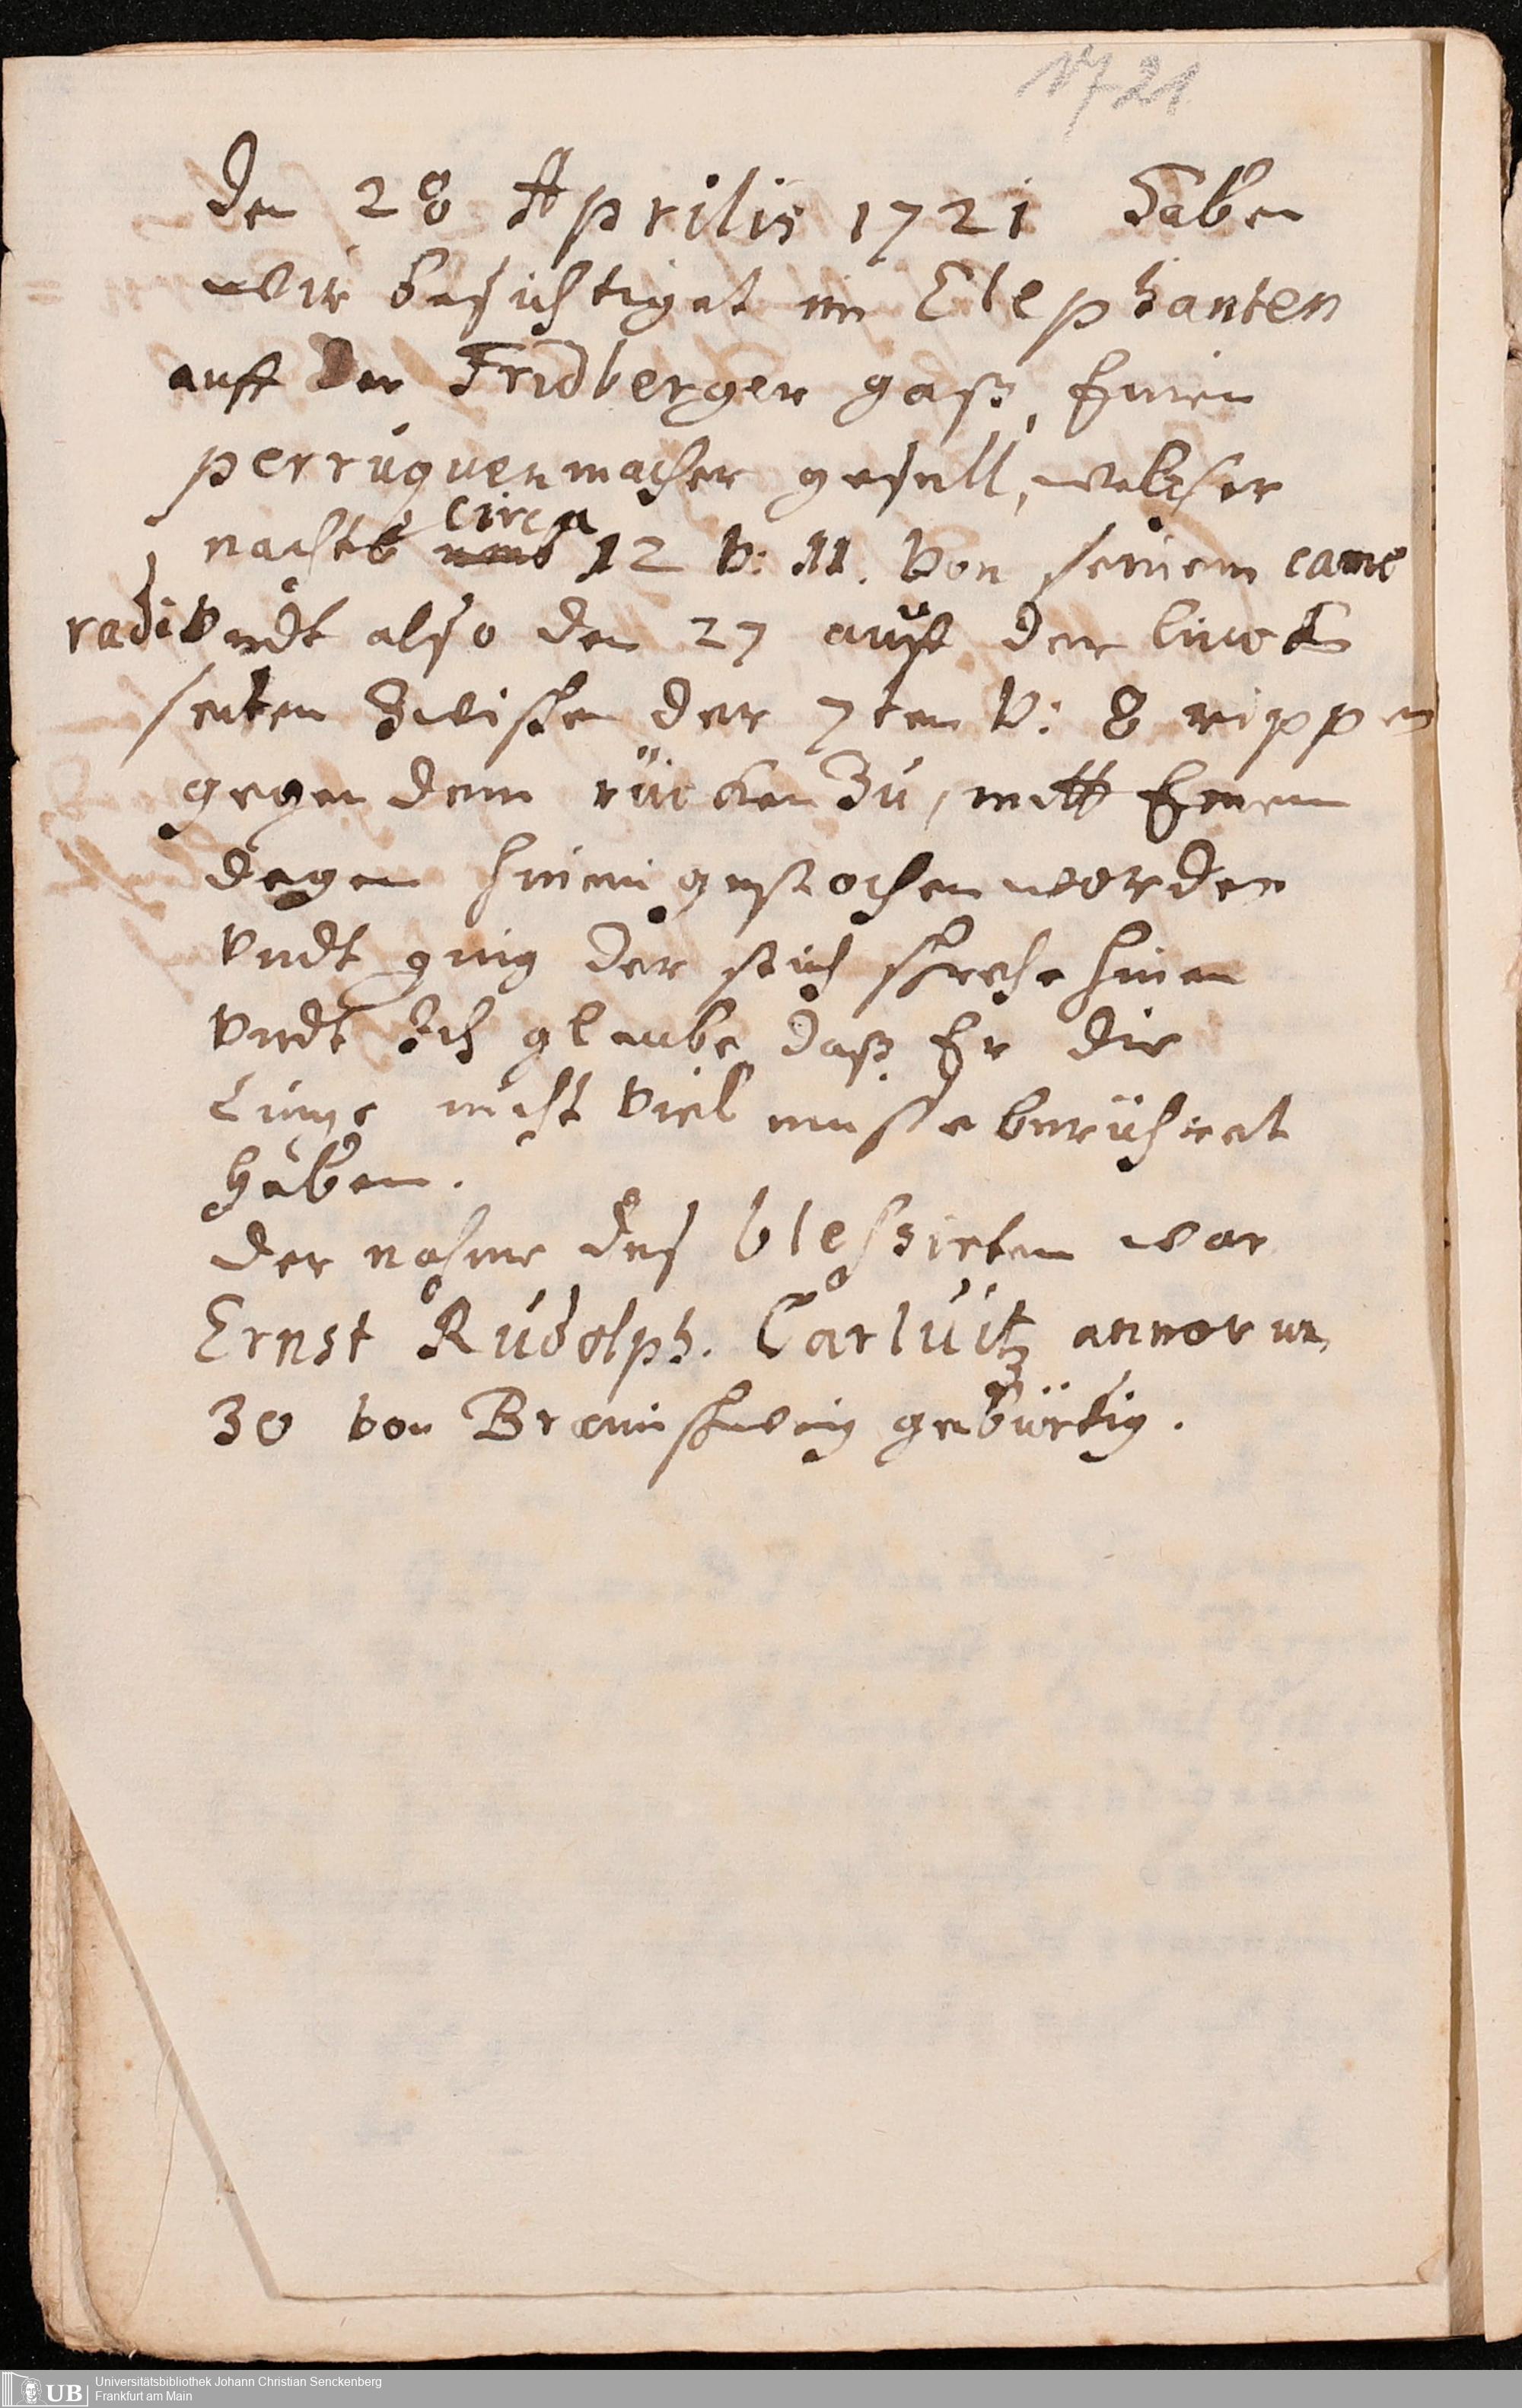 1721
den 28 Aprilis 1721 haben
wir besichtiget im Elephanten
auff der Fridberger gaß, Einen
perruquenmacher gesell, welcher
nachts circa 12 v: 11. von seinem came
radt vndt also den 27 auff der lincken
seiten zwischen der 7ten v: 8 rippen
gegen dem rücken zu, mitt Einem
degen hinein gestochen worden
vndt ging der stich schreche hinein
vndt Ich glaube daß Er die
Lunge nicht viel müsse berühret
haben.
der nahme des blessirten war
Ernst Rudolph. Carluitz annorum
30 von Braunschweig gebürtig.
UB Universitätsbibliothek Johann Christian Senckenberg
Frankfurt am Main